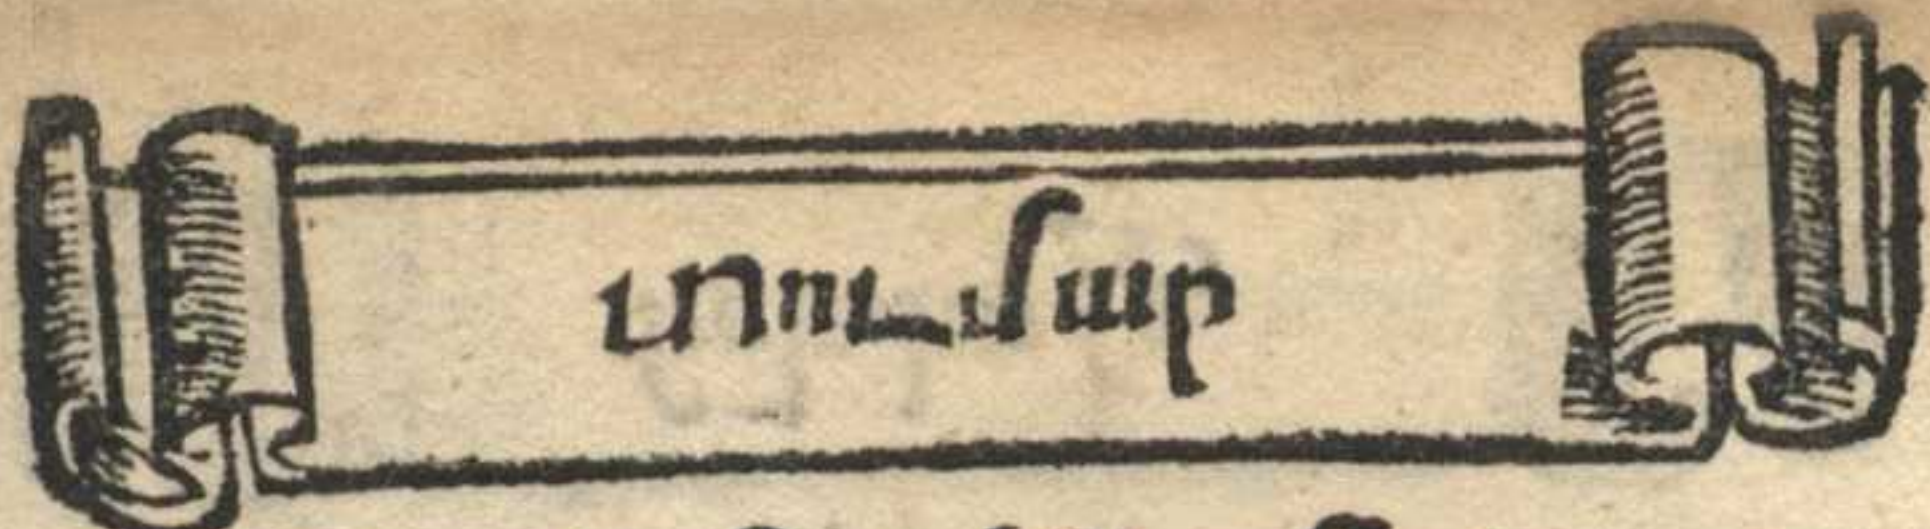 տումար